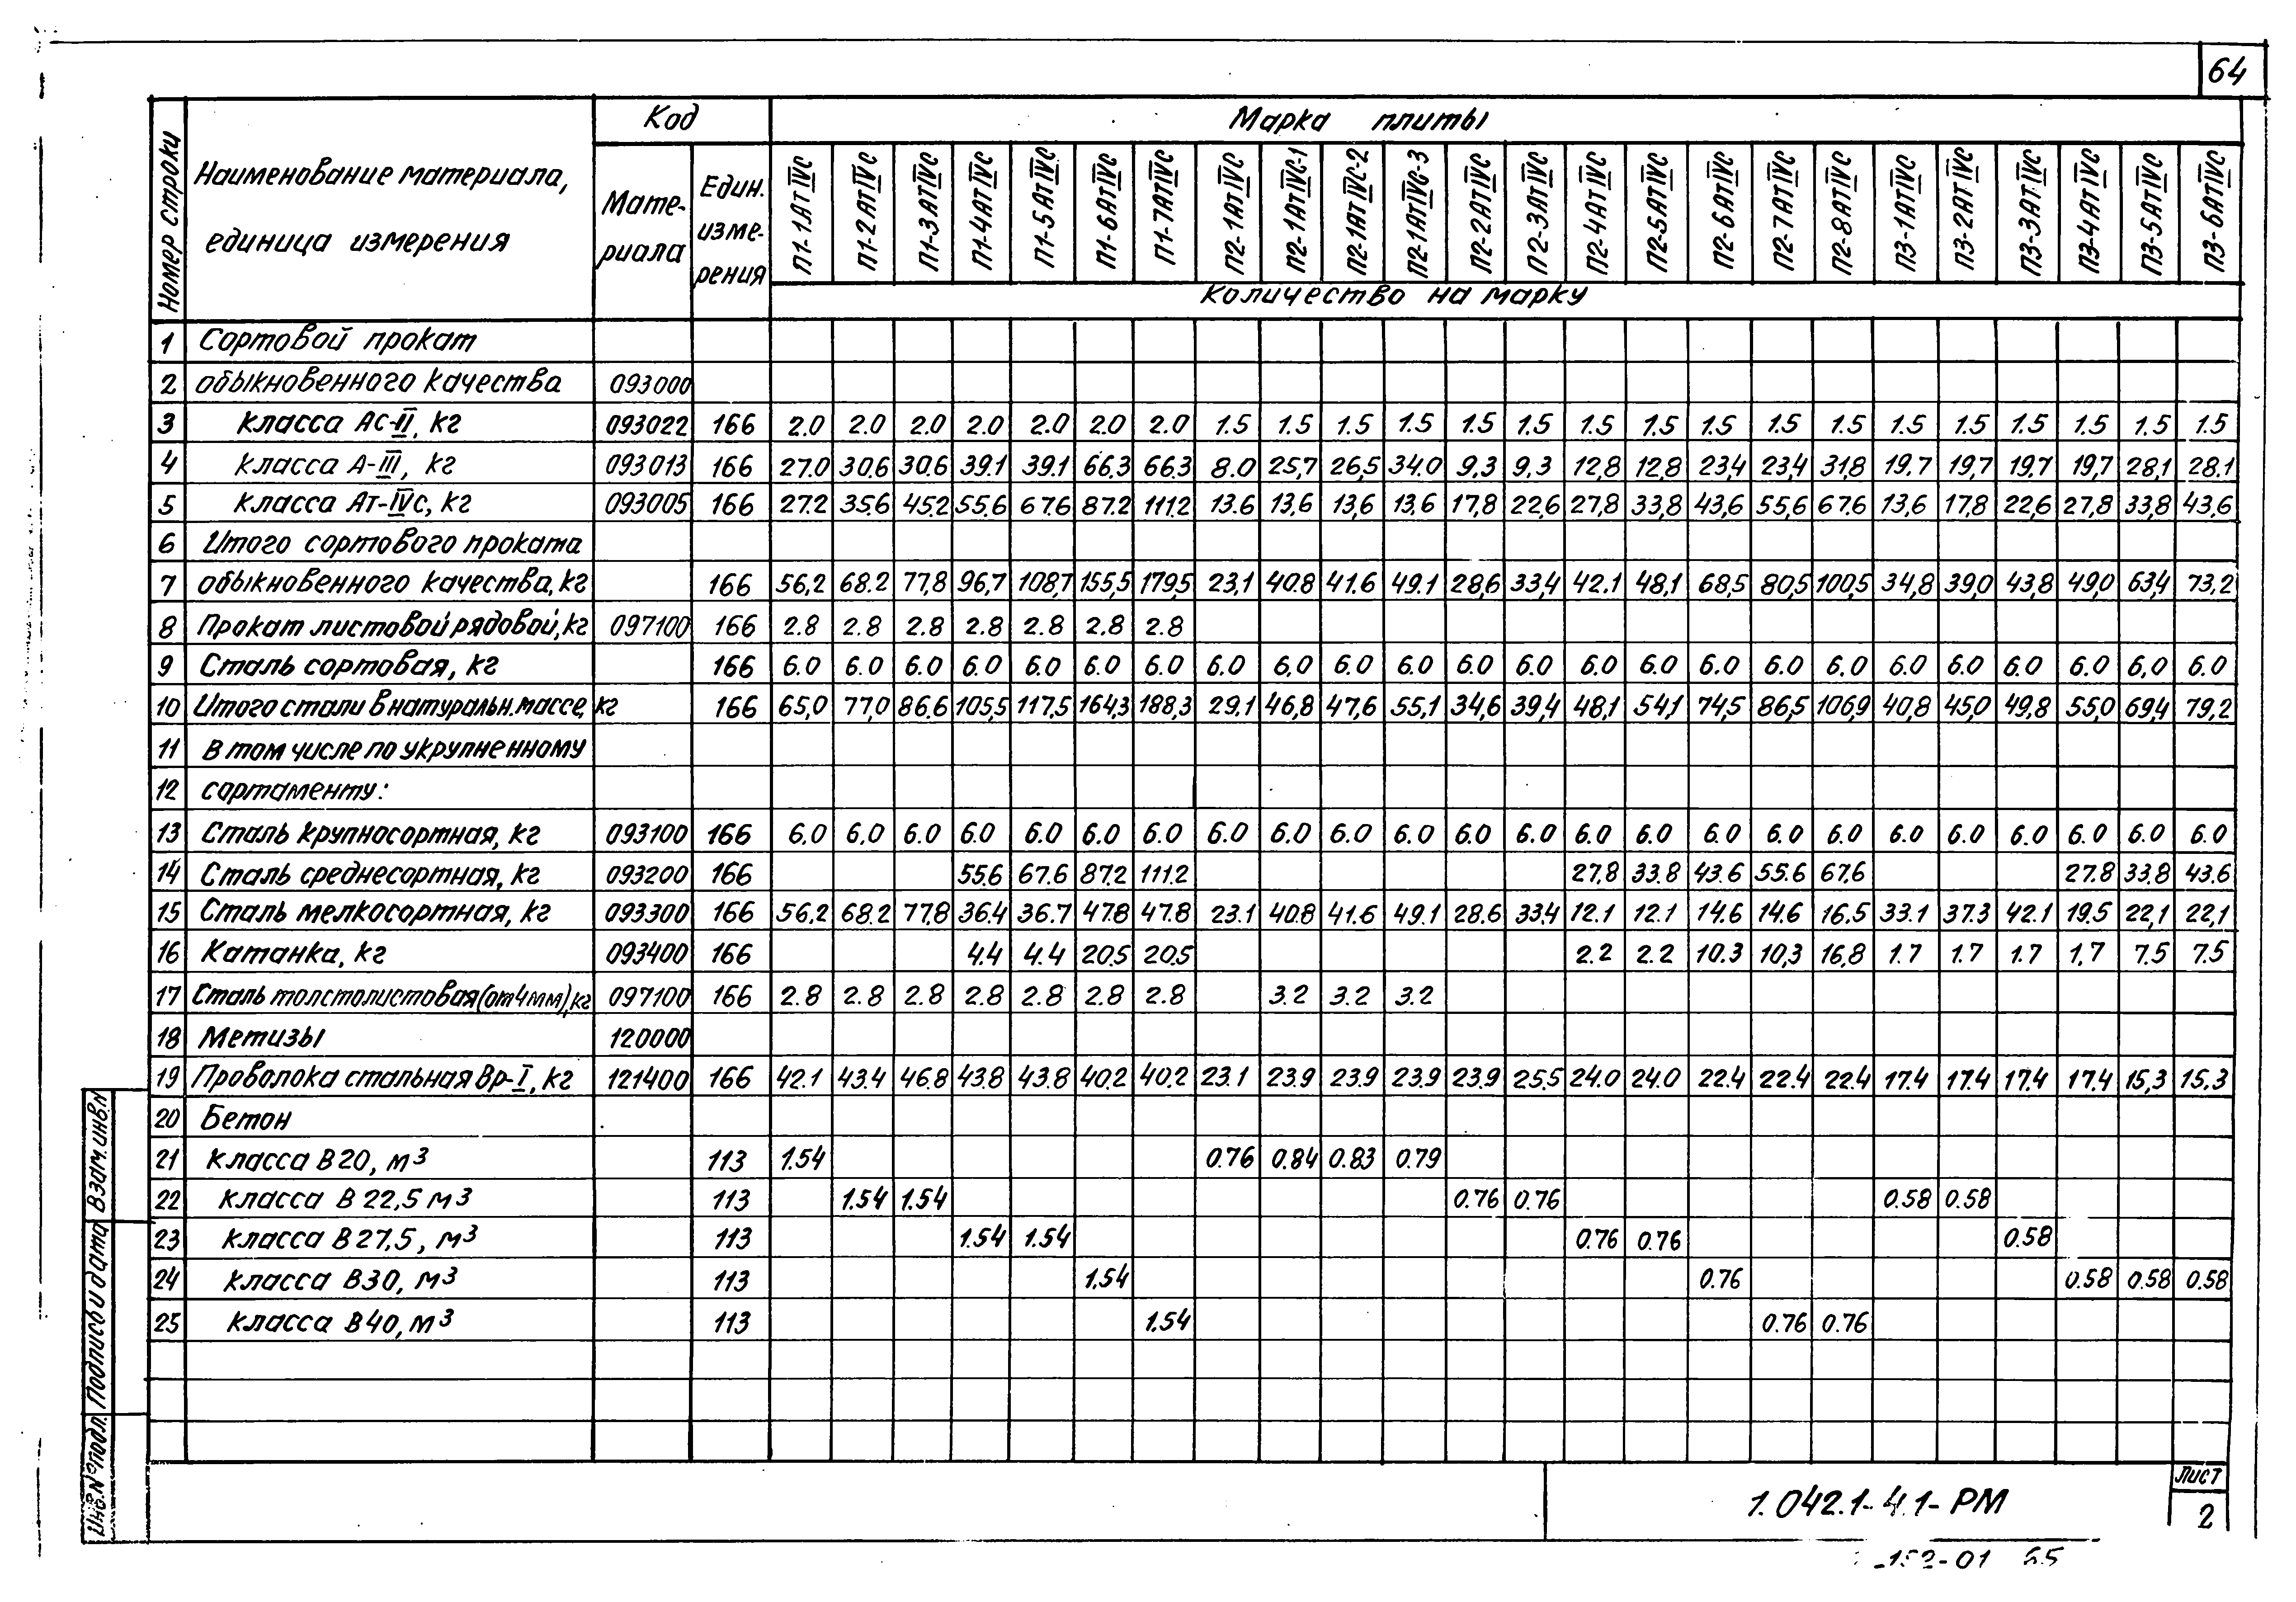 64
Номер строки
Наименование материала, единица измерения
Код
Мате-
риала
Един.
изме-
рения
Марка плиты
П1-1АтIVС П1-2АтIVС П1-3АтIVС П1-4АтIVС П1-5АтIVС П1-6АтIVС П1-7АтIVС П2-1АтIVС П2-1АтIVС-1 П2-1АтIVС-2 П2-1АтIVС-3 П2-2АтIVС П2-3АтIVС П2-4АтIVС П2-5АтIVС П2-6АтIVС П2-7АтIVС П2-8АтIVС П3-1АтIVС П3-2АтIVС П3-3АтIVС П3-4АтIVС П3-5АтIVС П3-6АтIVС
Количество на марку
1 Сортовой прокат
2 обыкновенного качества 093000
3 класса Ас-II, кг 093022 166 2.0 2.0 2.0 2.0 2.0 2.0 2.0 1.5 1.5 1.5 1.5 1.5 1.5 1.5 1.5 1.5 1.5 1.5 1.5 1.5 1.5 1.5 1.5 1.5
4 класса А-III, кг 093013 166 27.0 30.6 30.6 39.1 39.1 66.3 66.3 8.0 25,7 26,5 34.0 9,3 9,3 12,8 12.8 23,4 23,4 31,8 19,7 19,7 19,7 19,7 28,1 28.1
5 класса Ат-IVс, кг 093005 166 27.2 35,6 45.2 55,6 67.6 87.2 111.2 13.6 13,6 13,6 13,6 17,8 22,6 27,8 33,8 43,6 55,6 67,6 13,6 17,8 22,6 27,8 33,8 43,6
6 Итого сортового проката
7 обыкновенного качества, кг 166 56,2 68.2 77,8 96,7 108,7 155,5 179,5 23,1 40.8 41.6 49.1 28,6 33,4 42.1 48,1 68,5 80,5 100,5 34,8 39,0 43,8 49,0 63,4 73,2
8 Прокат листовой рядовой, кг 097100 166 2.8 2.8 2.8 2.8 2.8 2.8 2.8
9 Сталь сортовая, кг 166 6.0 6.0 6.0 6.0 6.0 6.0 6.0 6.0 6,0 6.0 6.0 6.0 6.0 6.0 6.0 6.0 6.0 6.0 6.0 6.0 6.0 6.0 6,0 6.0
10 Итого стали в натуральн. массе, кг 166 65,0 77,0 86.6 105,5 117,5 164,3 188,3 29.1 46,8 47,6 55,1 34,6 39,4 48,1 54,1 74,5 86,5 106,9 40,8 45,0 49,8 55,0 69,4 79,2
11 в том числе по укрупненному
12 сортаменту:
13 Сталь крупносортная, кг 093100 166 6.0 6,0 6.0 6.0 6.0 6.0 6.0 6.0 6.0 6.0 6.0 6.0 6.0 6.0 6.0 6.0 6.0 6.0 6.0 6.0 6.0 6.0 6.0 6.0
14 Сталь среднесортная, кг 093200 166 55.6 67.6 87.2 111.2 27,8 33.8 43.6 55.6 67.6 27.8 33,8 43.6
15 Сталь мелкосортная, кг 093300 166 56,2 68.2 77.8 36.4 36.7 47.8 47.8 23.1 40.8 41.6 49.1 28.6 33,4 12.1 12.1 14.6 14.6 16.5 33.1 37.3 42.1 19.5 22,1 22,1
16 Катанка, кг 093400 166 4.4 4.4 20.5 20.5 2.2 2.2 10.3 10,3 16,8 1.7 1.7 1.7 1,7 7.5 7.5
17 Сталь толстолистовая (от 4 мм), кг 097100 166 2.8 2.8 2.8 2.8 2.8 2.8 2.8 3.2 3.2 3.2
18 Метизы 120000
19 Проволока стальная Вр-I, кг 121400 166 42.1 43.4 46.8 43.8 43.8 40.2 40.2 23.1 23.9 23.9 23.9 23.9 25.5 24.0 24.0 22.4 22.4 22.4 17.4 17.4 17.4 17.4 15,3 15.3
20 Бетон
21 класса В20, м3 113 1.54 0.76 0.84 0.83 0.79
22 класса В 22,5 м3 113 1.54 1.54 0.76 0.76 0.58 0.58
23 класса В27,5, м3 113 1.54 1.54 0.76 0.76 0.58
24 класса В30, м3 113 1.54 0.76 0.58 0.58 0.58
25 класса В40, м3 113 1.54 0.76 0.76
Инв.№подл. Подпись и дата Взам.инв.№
1.042.1-4.1-РМ
Лист
2
-01 65